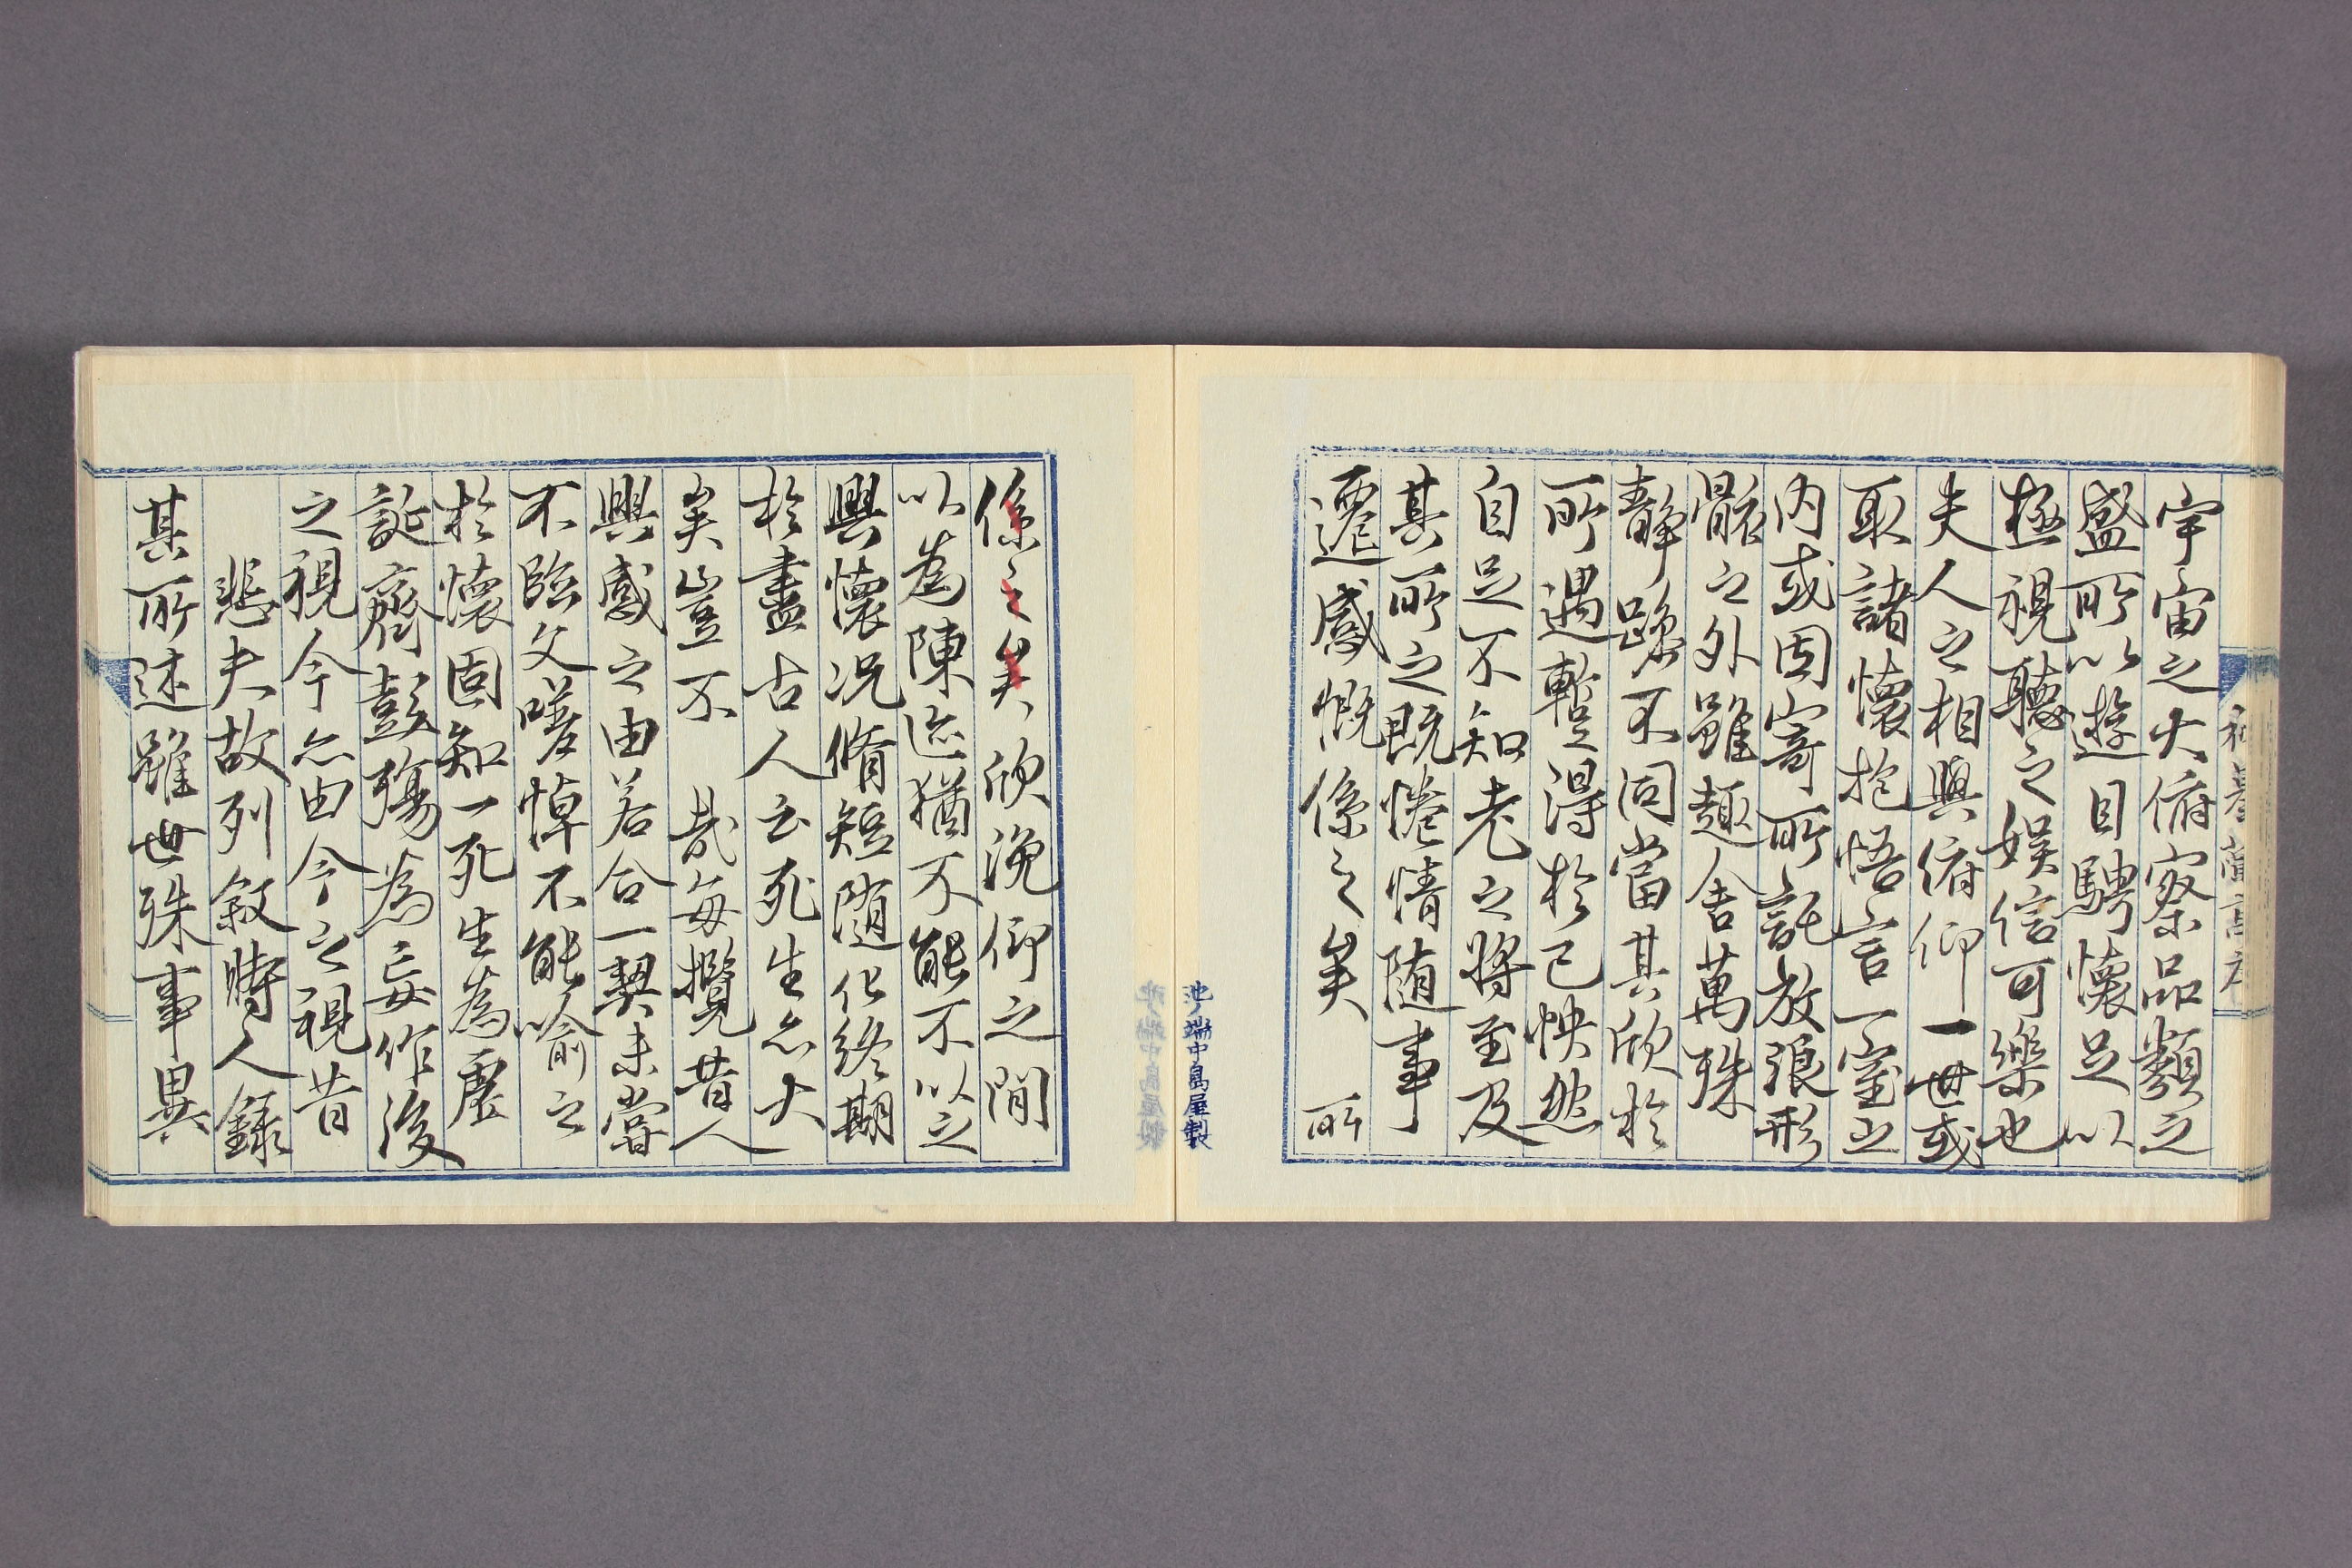 蘭亭序
宇宙之大俯察品類之
盛所以遊目騁懷足以
極視聽之娛信可樂也
夫人之相與俯仰一世或
取諸懷抱悟言一室之
内或因寄所託放浪形
骸之外雖趣舍萬殊
靜躁不同當其欣於
所遇蹔得於己怏然
自足不知老之將至及
其所之既惓情隨事
遷感慨係之矣 所
池ノ端中島屋製
係之矣欣俛仰之間
以為陳迹猶不能不以之
興懷況脩短隨化終期
於盡古人云死生亦大
矣豈不 哉每攬昔人
興感之由若合一契未嘗
不臨文嗟悼不能喻之
於懷固知一死生為虛
誕齊彭殤為妄作後
之視今亦由今之視昔
悲夫故列敘時人錄
其所述雖世殊事異